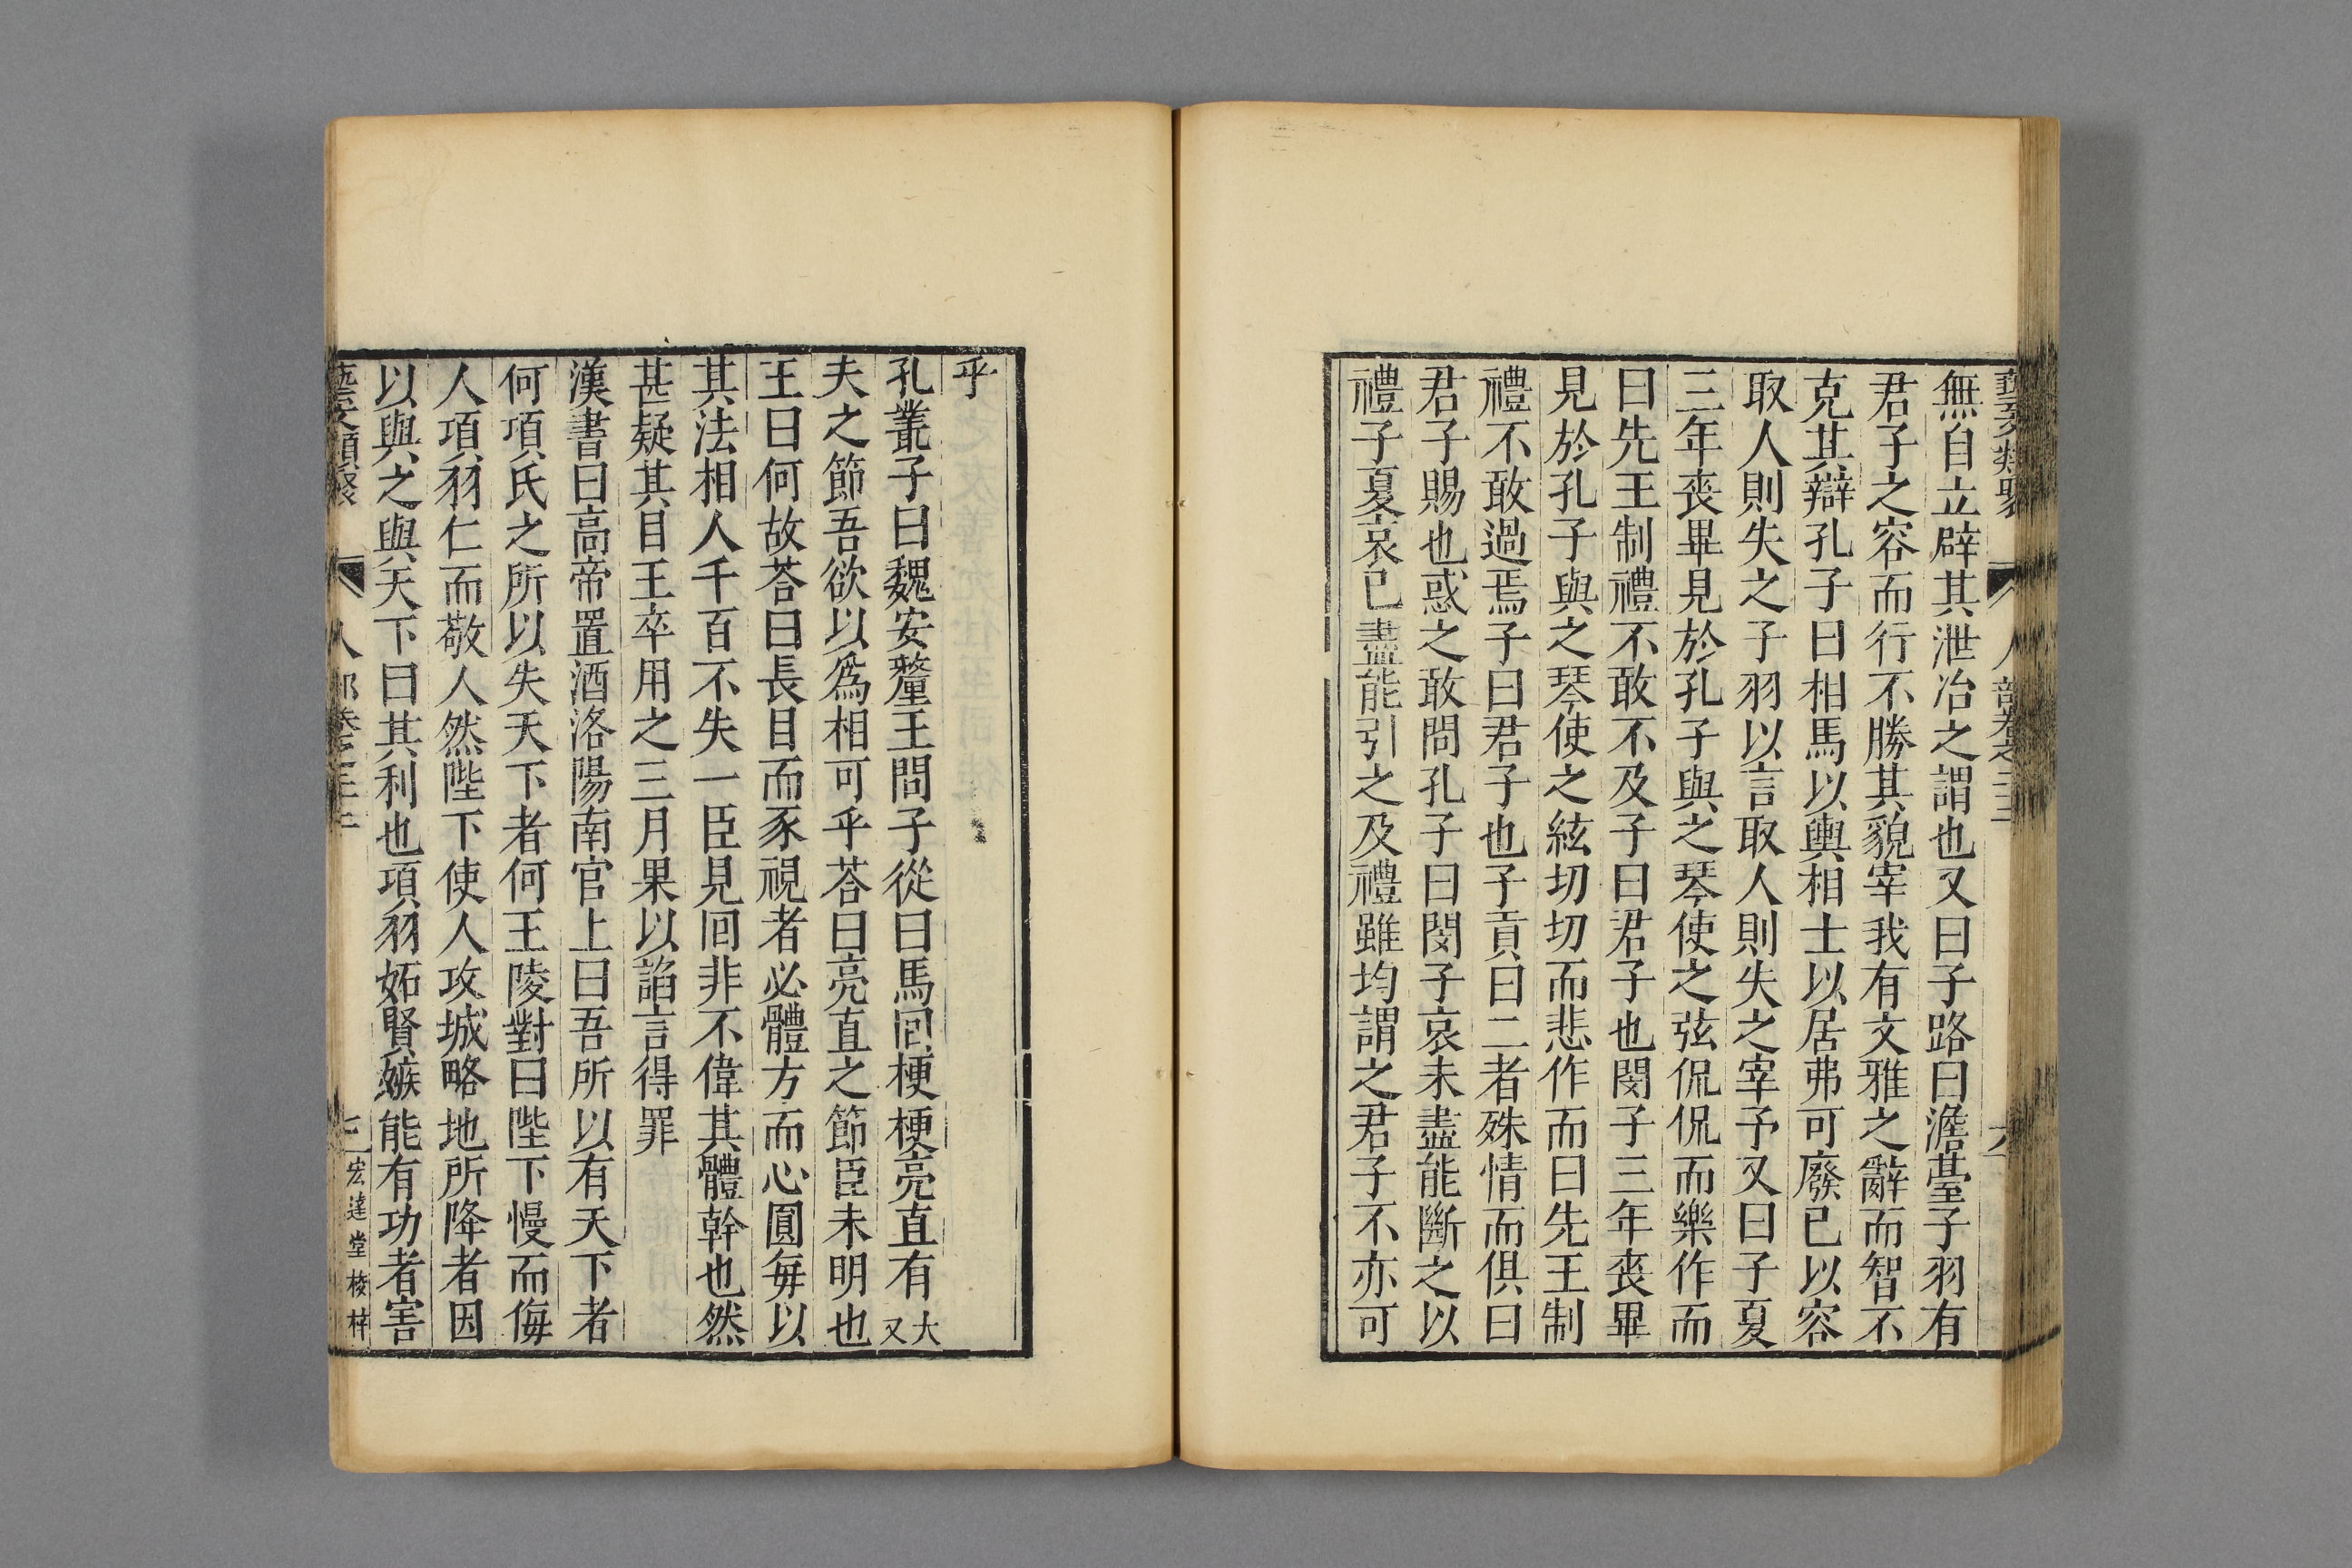 藝文類聚 人部卷之二十二 六
無自立辟其泄冶之謂也又曰子路曰澹臺子羽有
君子之容而行不勝其貌宰我有文雅之辭而智不
克其辯孔子曰相馬以輿相士以居弗可廢已以容
取人則失之子羽以言取人則失之宰予又曰子夏
三年喪畢見於孔子與之琴使之弦侃侃而樂作而
曰先王制禮不敢不及子曰君子也閔子三年喪畢
見於孔子與之琴使之絃切切而悲作而曰先王制
禮不敢過焉子曰君子也子貢曰二者殊情而俱曰
君子賜也惑之敢問孔子曰閔子哀未盡能斷之以
禮子夏哀已盡能引之及禮雖均謂之君子不亦可
乎
孔叢子曰魏安釐王問子從曰馬回梗梗亮直有大
又
夫之節吾欲以為相可乎荅曰亮直之節臣未明也
王曰何故荅曰長目而豕視者必體方而心圓每以
其法相人千百不失一臣見回非不偉其體幹也然
甚疑其目王卒用之三月果以諂言得罪
漢書曰高帝置酒洛陽南宮上曰吾所以有天下者
何項氏之所以失天下者何王陵對曰陛下慢而侮
人項羽仁而敬人然陛下使人攻城略地所降者因
以與之與天下曰其利也項羽妬賢嫉能有功者害
藝文類聚 人部卷之二十二 七 宏達堂棱梓